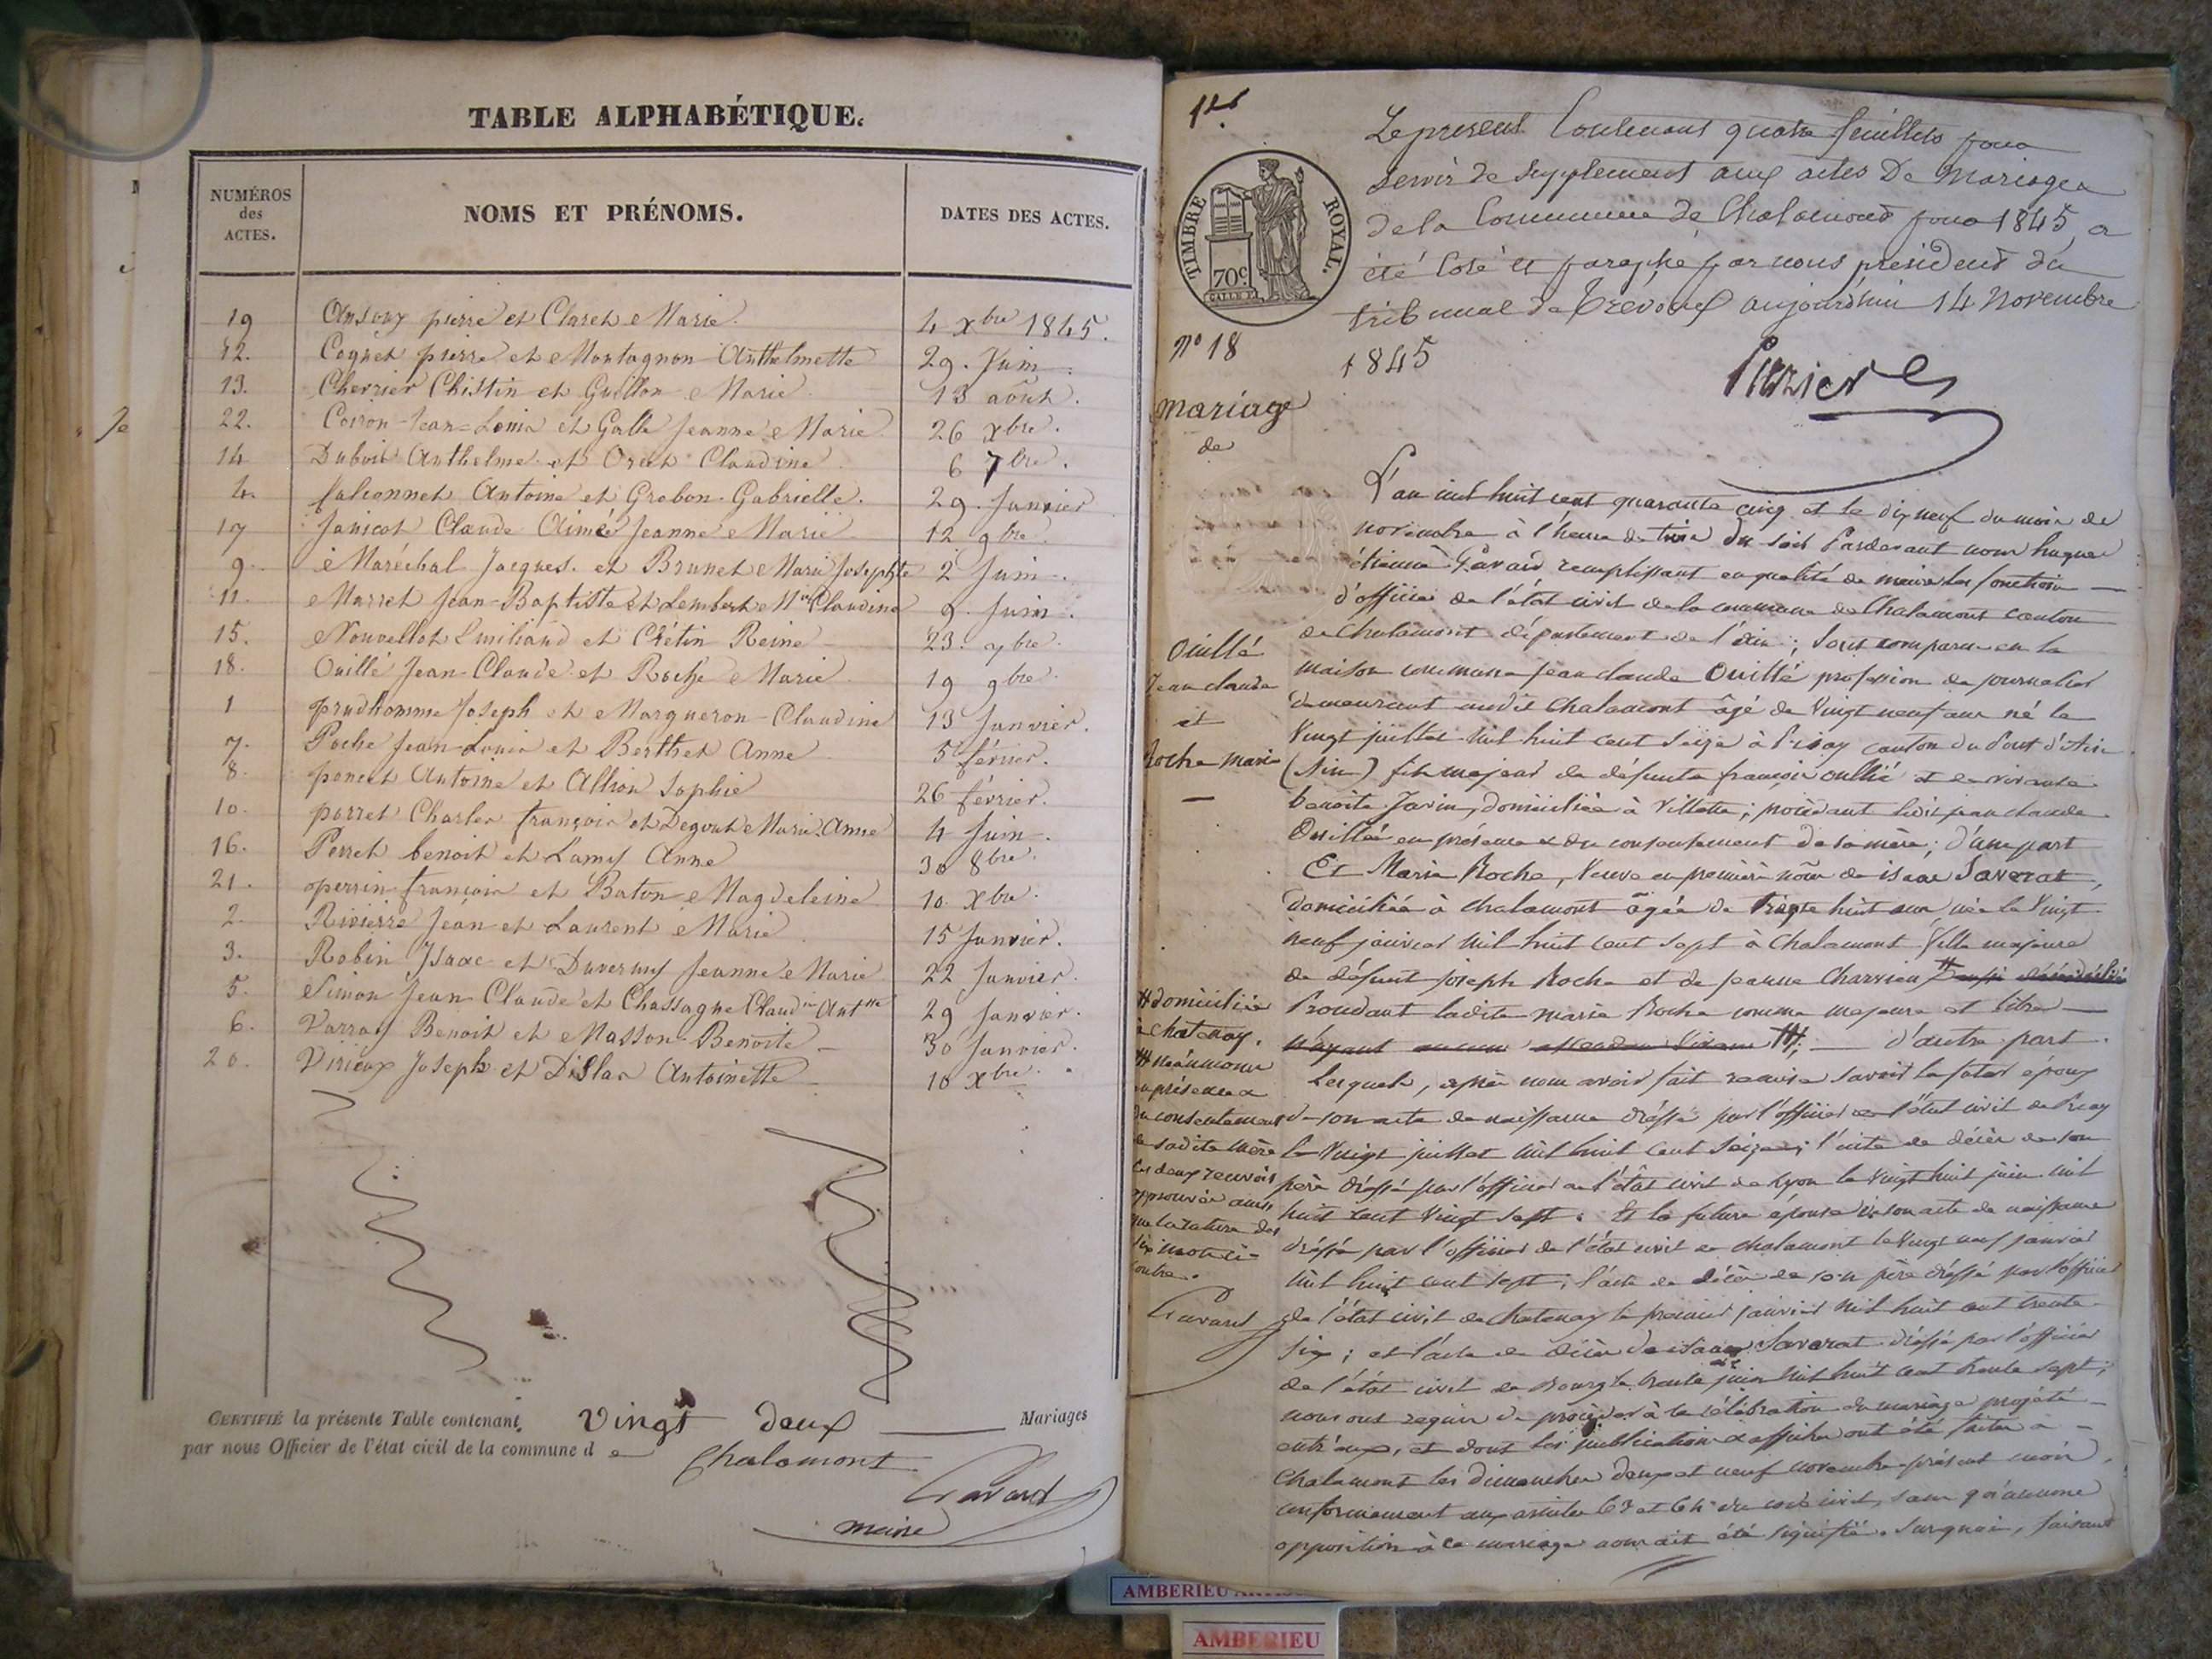 TABLE ALPHABÉTIQUE.
NUMÉROS des ACTES.
NOMS ET PRÉNOMS.
DATES DES ACTES.
19 pierre et Claret Marie 4 xbre 1845.
12. Cognet pierre et Montagnon Anthelmette 29. Juin.
13. Cherrier Chistin et Guillon Marie 13 août.
22. Coiron Jean-Louis et Galle Jeanne Marie 26 xbre.
14 Dubois Anthelme et Claudine 6 7bre.
4. falconnet Antoine et Grobon Gabrielle. 29. Janvier
17 Janicot Claude Aimée Jeanne Marie 12 9bre.
9. Maréchal Jacques. et Brunet Marie Josephte 2 Juin.
11. Marret Jean-Baptiste et Lembert Mie Claudine 9. Juin.
15. Nouvellet et Crétin Reine 23. 7bre.
18. Ouillé Jean-Claude et Roche Marie 19 9bre.
1 prudhomme Joseph et Margueron Claudine 13 Janvier.
7. Poche Jean-Louis et Berthet Anne 5 février.
8. poncet Antoine et Allion Sophie 26 février.
10. porret Charles françois et Degout Marie Anne 4 Juin.
16. Perret benoit et Lamy Anne 30 8bre.
21. perrin françois et Baton Magdeleine 10 xbre.
2. Rivierre Jean et Laurent Marie 15 Janvier.
3. Robin Isaac et Duvernay Jeanne Marie 22 Janvier.
5. Simon Jean Claude et Chassagne Claudine Antte 29 Janvier.
6. Varray Benoit et Masson Benoite 30 Janvier.
20. Virieux Joseph et Antoinette 10 xbre.
CERTIFIÉ la présente Table contenant vingt deux Mariages
par nous Officier de l'état civil de la commune d e Chalamont
Gavard
maire
TIMBRE ROYAL.
70c
Le présent contenant quatre feuillets pour
servir de supplement aux actes de mariages
de la Commune de Chalamont pour 1845, a
été coté et paraphé par nous président du
tribunal de Trévoux aujourd'hui 14 novembre
1845
n° 18
mariage
de
Ouillé
Jean claude
et
Roche marie
L'an mil huit cent quarante cinq et le dix neuf du mois de
novembre à l'heure de trois du soir Pardevant nous hugues
étienne Gavard remplissant en qualité de maire les fonctions
d'officier de l'état civil de la commune de Chalamont canton
de Chalamont département de l'ain; sont comparu en la
maison commune jean claude Ouillé profession de journalier
demeurant audit Chalamont âgé de Vingt neuf ans né le
Vingt juillet mil huit cent seize à Priay canton du Pont d'Ain
(Ain) fils majeur de défunt françois ouillé et de vivante
benoite Javin, domiciliée à Villette; procédant ledit jean claude
Ouillé en présence et du consentement de sa mère; d'une part
Et Marie Roche, Veuve en première nôce de isaac Saverat,
domiciliée à chalamont âgée de trente huit ans née le Vingt
neuf janvier mil huit cent sept à Chalamont fille majeure
de défunt joseph Roche et de jeanne Charvieu
Procédant ladite marie Roche comme majeure et libre
n'ayant aucun d'autre part.
Lesquels, après nous avoir fait remise savoir le futur époux
de son acte de naissance dressé par l'officier de l'état civil de Priay
le Vingt juillet mil huit cent seize; l'acte de décès de son
père dressé par l'officier de l'état civil de Lyon le Vingt huit juin mil
huit cent Vingt sept. Et la future épouse de son acte de naissance
dressé par l'officier de l'état civil de chalamont le Vingt neuf janvier
mil huit cent sept; l'acte de décès de son père dressé par l'officier
de l'état civil de Chatenay le premier janvier mil huit cent trente
six; et l'acte de décès de isaac Saverat dressé par l'officier
de l'état civil de Bourg le trente juin mil huit cent trente sept;
nous ont requis de procéder à la célébration du mariage projeté
entr'eux, et dont les publications et affiches ont été faites à
Chalamont les dimanches deux et neuf novembre présent mois,
conformément aux articles 63 et 64 du code civil, sans qu'aucune
opposition à ce mariage nous ait été signifiée. Surquoi, faisant
domiciliée
à Chatenay.
néanmoins
en présence et
du consentement
de sadite mère
Les deux renvois
approuvés ainsi
que la rature des
dix mots ci-
contre.
Gavard
AMBERIEU
AMBERIEU